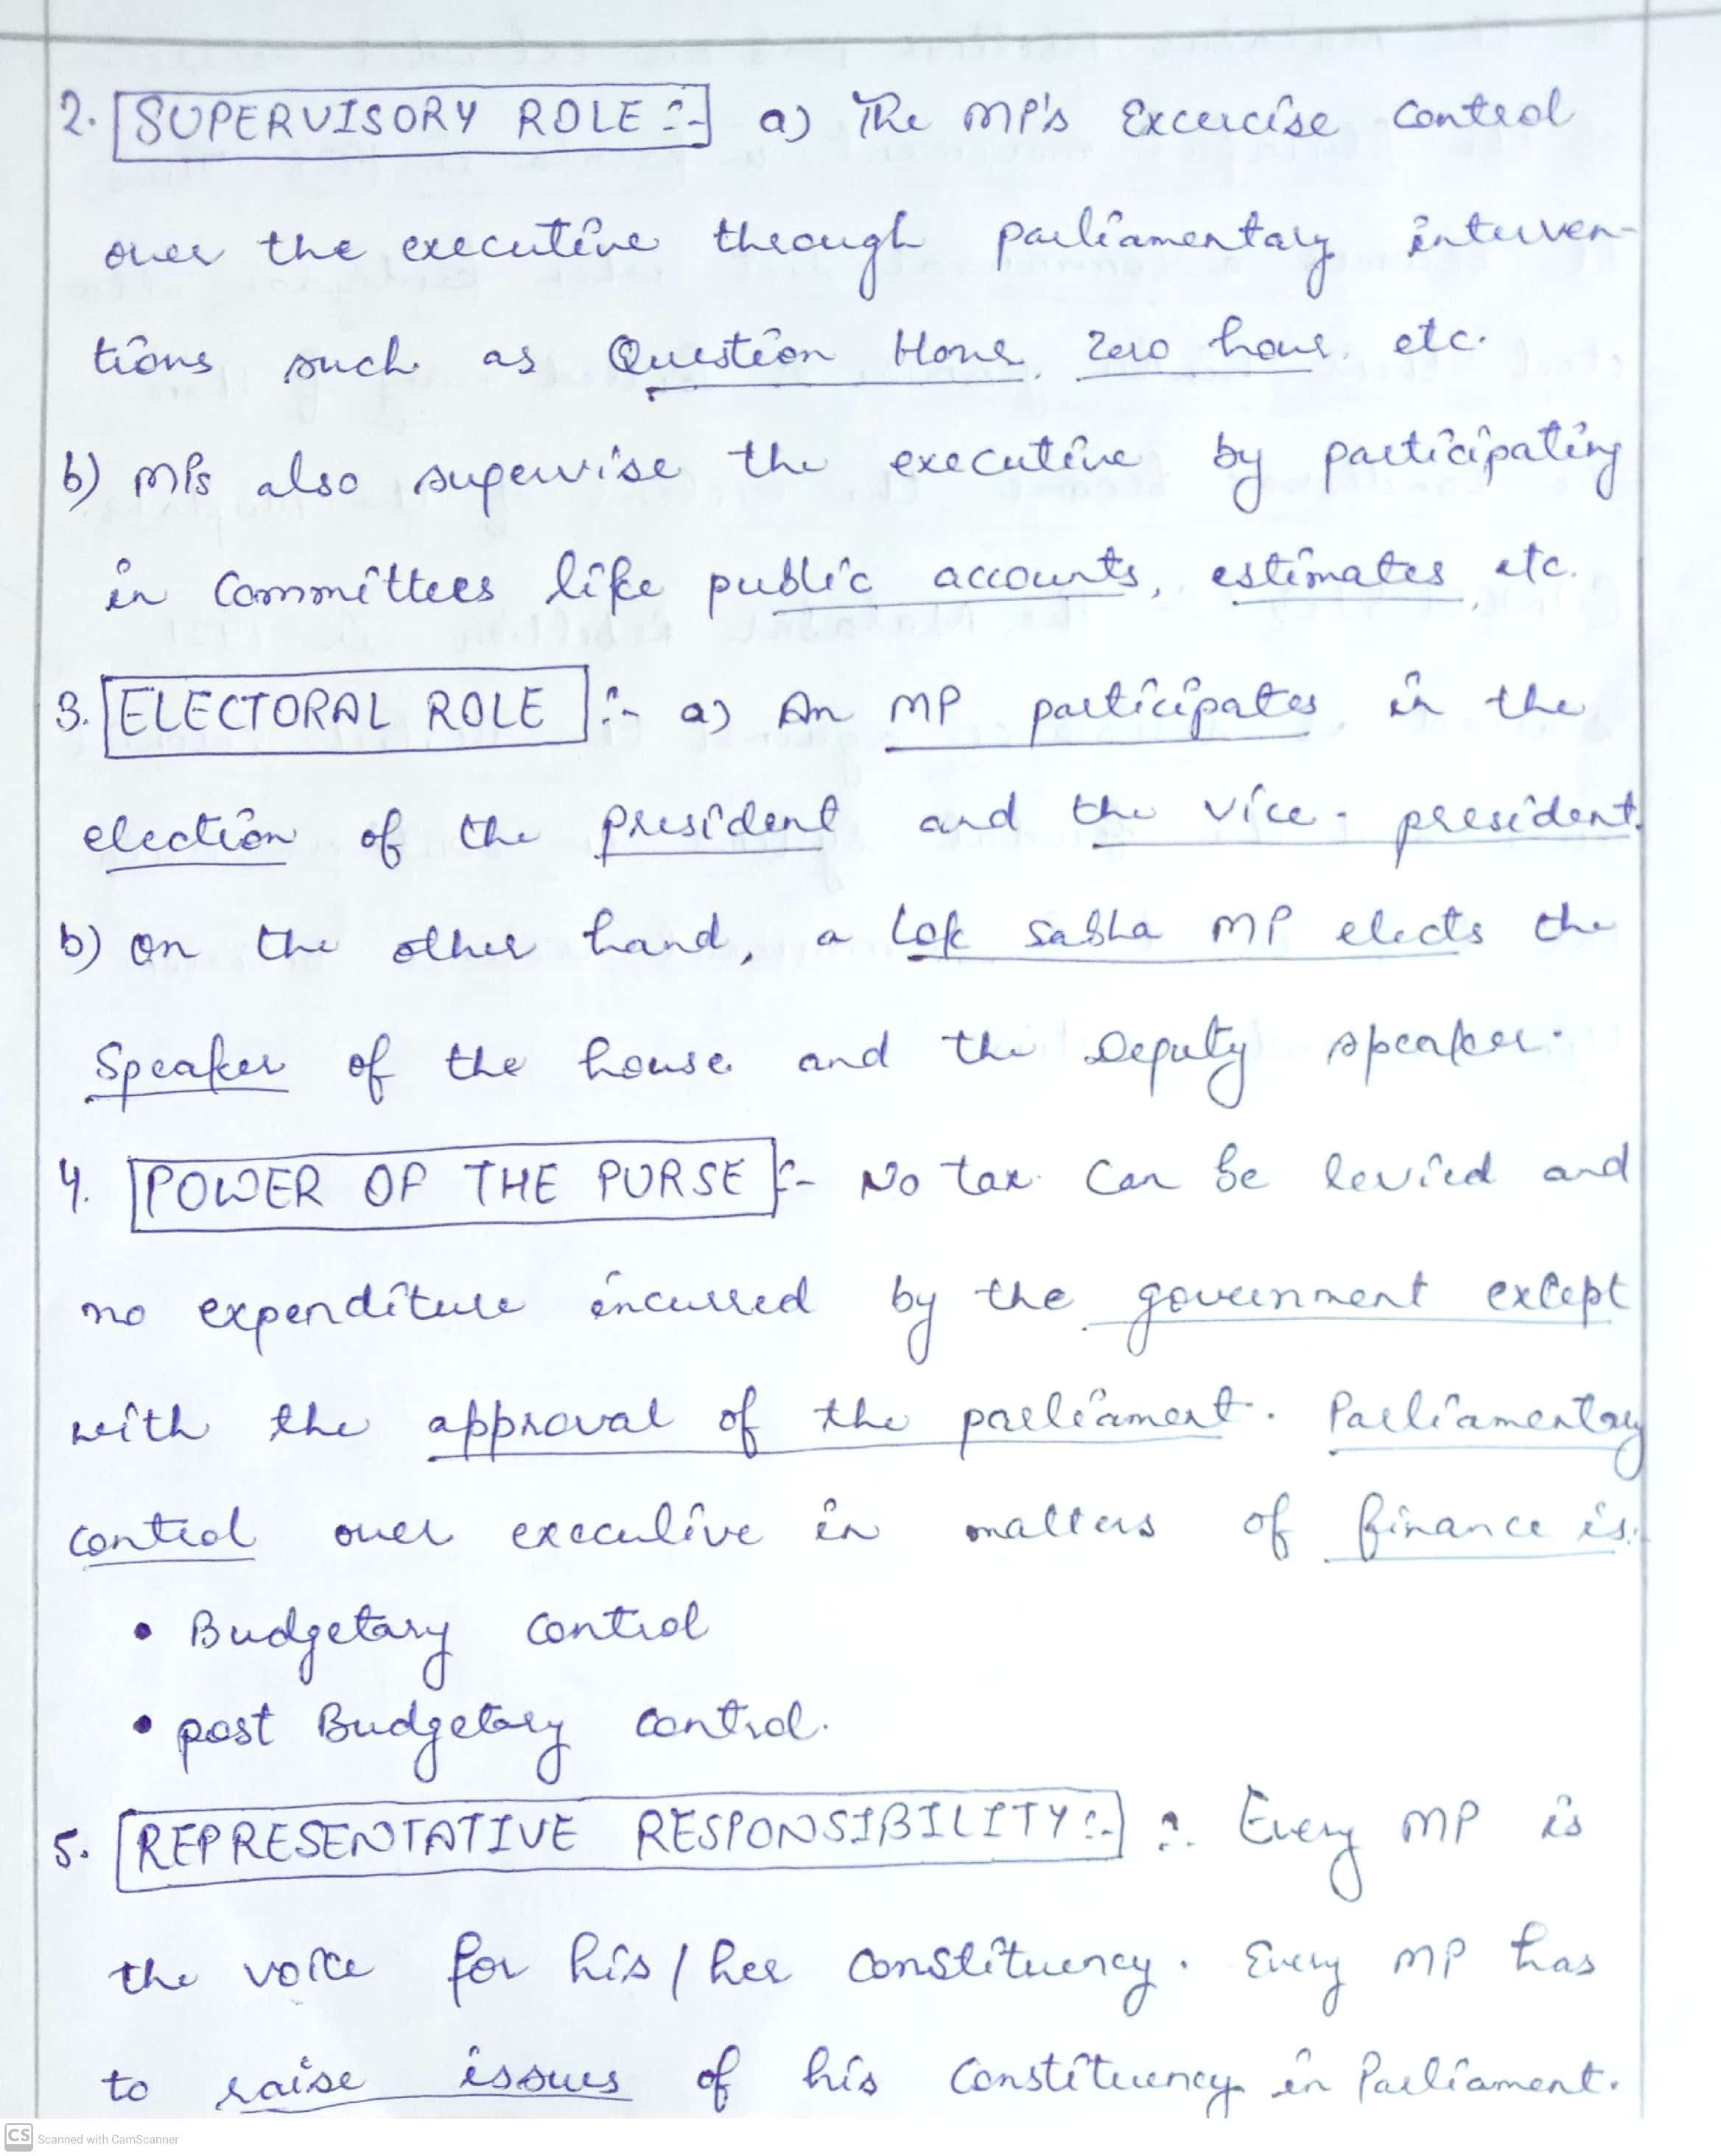 2. SUPERVISORY ROLE :- a) The MP's Excercise control
over the executive through parliamentary interven-
tions such as Question Hour, Zero hour, etc.
b) MPs also supervise the executive by participating
in Committees like public accounts, estimates, etc.
3. ELECTORAL ROLE :- a) An MP participates in the
election of the president and the vice-president.
b) On the other hand, a Lok Sabha MP elects the
Speaker of the house and the Deputy speaker.
4. POWER OF THE PURSE :- No tax can be levied and
no expenditure incurred by the government except
with the approval of the parliament. Parliamentary
control over executive in matters of finance is:
• Budgetary control
• post Budgetary control.
5. REPRESENTATIVE RESPONSIBILITY :- :. Every MP is
the voice for his/her constituency. Every MP has
to raise issues of his Constituency in Parliament.
CS Scanned with CamScanner